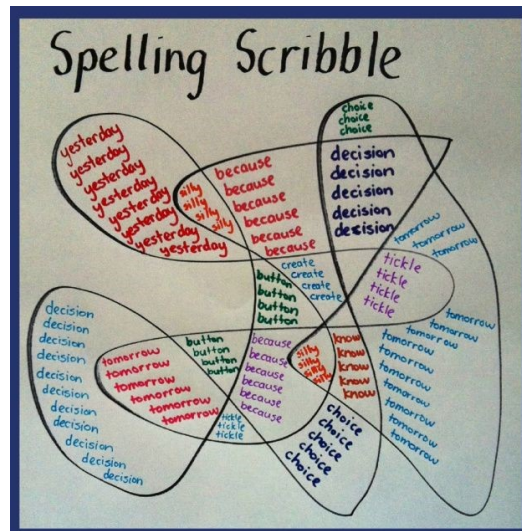 Spelling Scribble
choice
choice
choice
yesterday
yesterday
yesterday
yesterday
yesterday
yesterday
yesterday
yesterday
silly
silly
silly
silly
because
because
because
because
because
because
decision
decision
decision
decision
decision
tomorrow
tomorrow
tomorrow
create
create
create
create
button
button
button
button
tickle
tickle
tickle
tickle
decision
decision
decision
decision
decision
decision
decision
decision
decision
decision
decision
tomorrow
tomorrow
tomorrow
tomorrow
tomorrow
button
button
button
button
tickle
tickle
tickle
because
because
because
because
because
because
silly
silly
silly
silly
know
know
know
know
know
tomorrow
tomorrow
tomorrow
tomorrow
tomorrow
tomorrow
tomorrow
tomorrow
tomorrow
tomorrow
tomorrow
choice
choice
choice
choice
choice